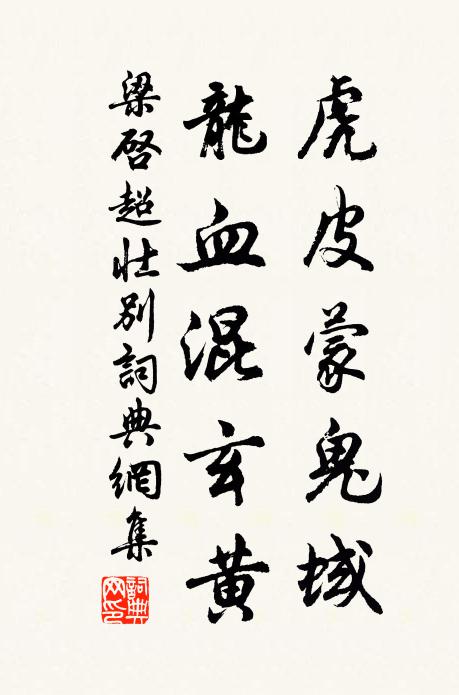 虎皮蒙鬼域
龍血混玄黄
梁啓超壯别詞典網集
詞典网印